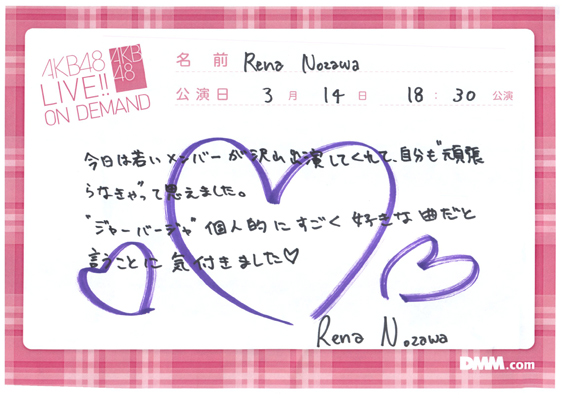 AKB48
LIVE!!
ON DEMAND
AKB
48
名前 Rena Nozawa
公演日 3月 14日 18:30公演
今日は若いメンバーが沢山出演してくれて、自分も"頑張
らなきゃ"って思えました。
"ジャーバージャ"個人的にすごく好きな曲だと
言うことに気付きました♡
Rena Nozawa
DMM.com